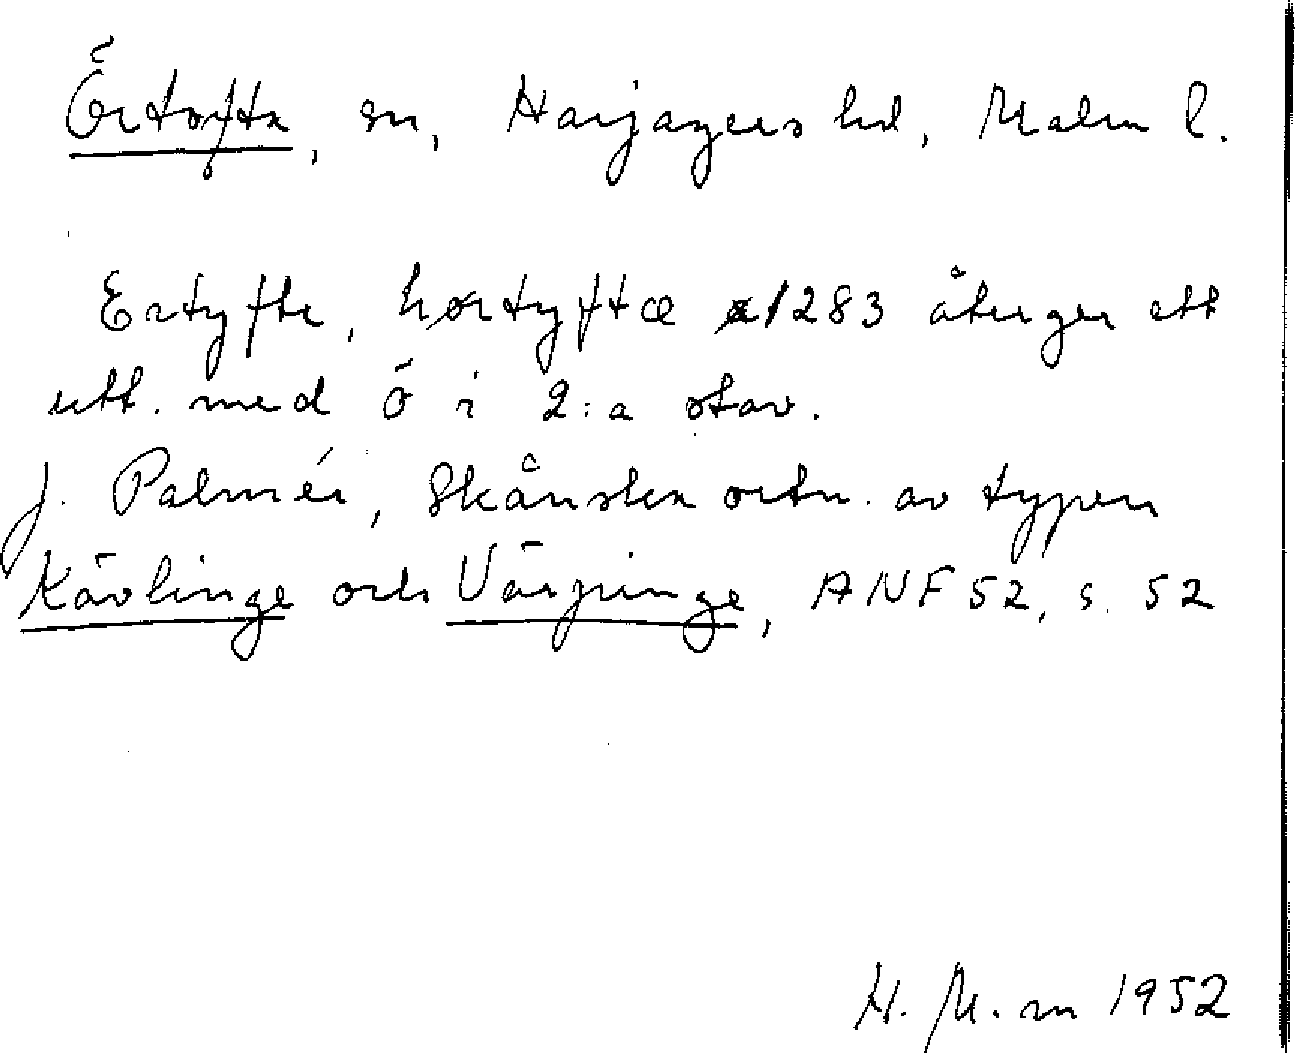 Örtofta, sn, Harjagers hd, Malm l.
Ertyfte, hørtyftæ 1283 återger ett
utt. med ö i 2:a stav.
J. Palmér, Skånska ortn. av typen
Kävlinge och Värpinge, ANF 52, s. 52
H. M. m 1952